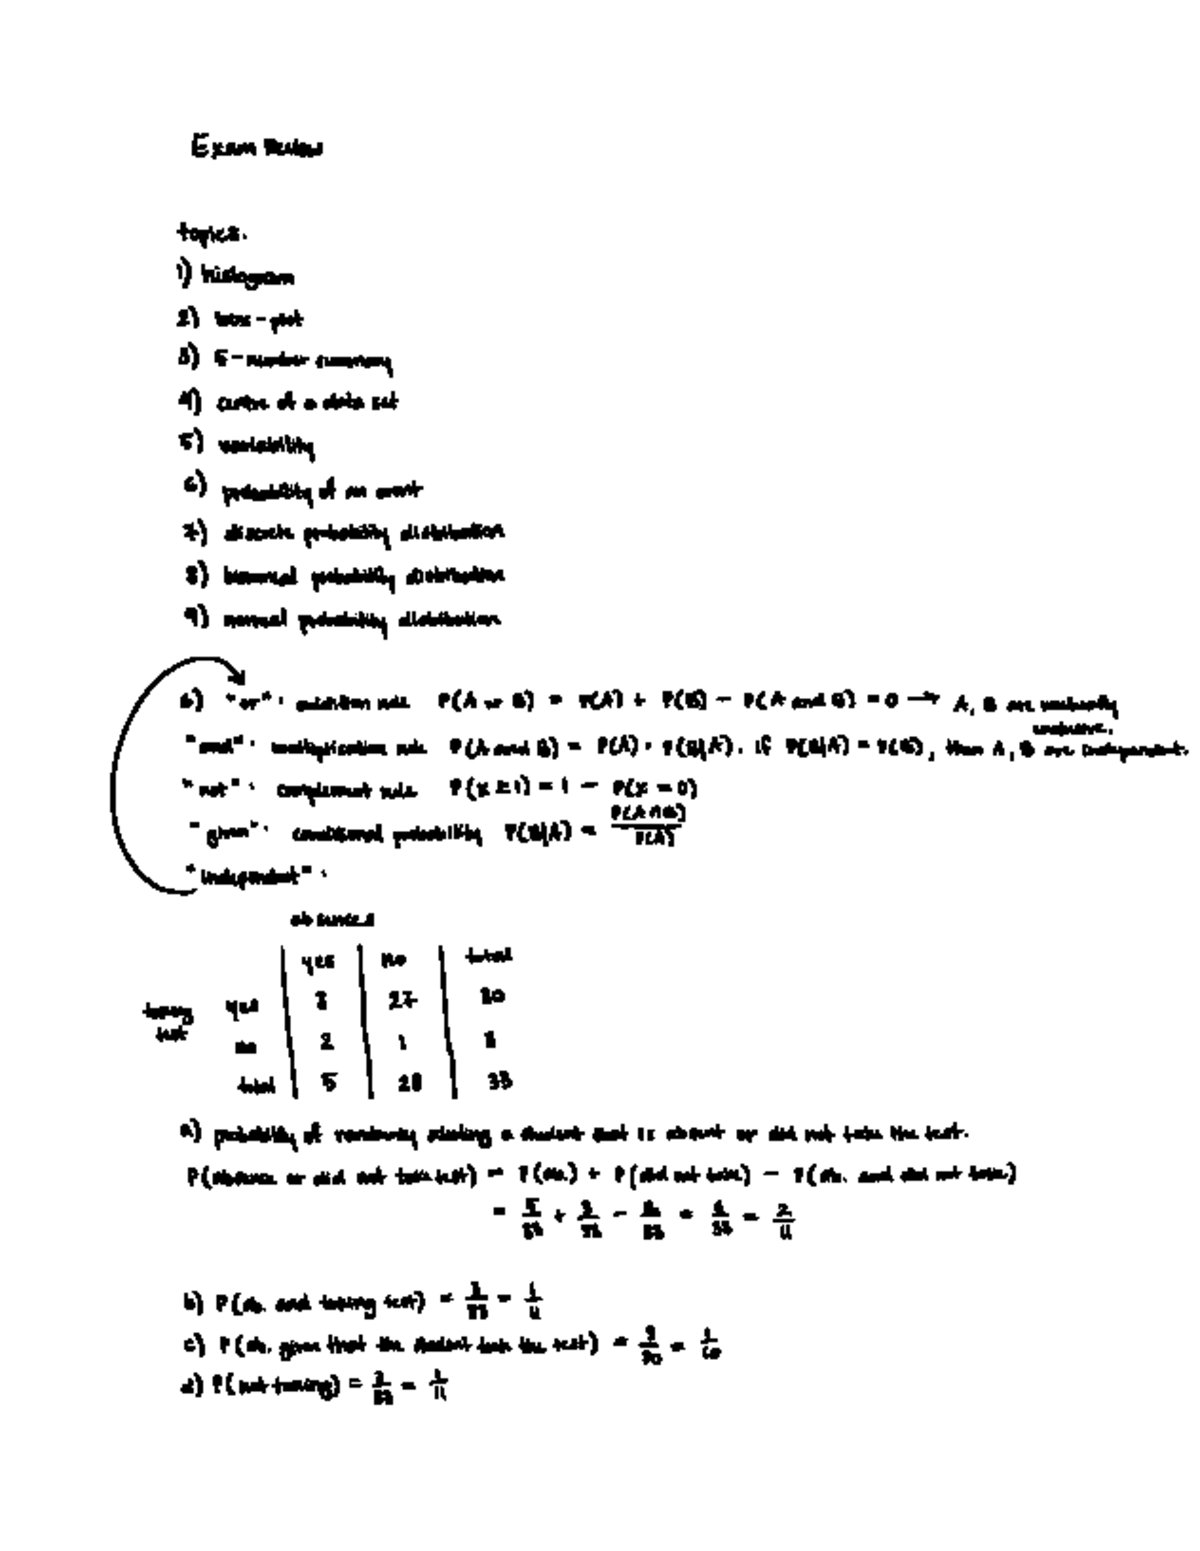 Exam Review
topics.
1) histogram
2) box-plot
3) 5-number summary
4) centre of a data set
5) variability
6) probability of an event
7) discrete probability distribution
8) binomial probability distribution
9) normal probability distribution
6) "or": addition rule P(A or B) = P(A) + P(B) - P(A and B) = 0 → A, B are mutually
exclusive.
"and": multiplication rule P(A and B) = P(A) · P(B|A). if P(B|A) = P(B), then A, B are independent.
"not": complement rule P(x ≥ 1) = 1 - P(x = 0)
"given": conditional probability P(B|A) = P(A∩B)/P(A)
"independent":
absences
yes no total
taking test yes 3 27 30
no 2 1 3
total 5 28 33
a) probability of randomly selecting a student that is absent or did not take the test.
P(absence or did not take test) = P(ab.) + P(did not take) - P(ab. and did not take)
= 5/33 + 3/33 - 2/33 = 6/33 = 2/11
b) P(ab. and taking test) = 3/33 = 1/11
c) P(ab. given that the student took the test) = 3/30 = 1/10
d) P(not taking) = 3/33 = 1/11